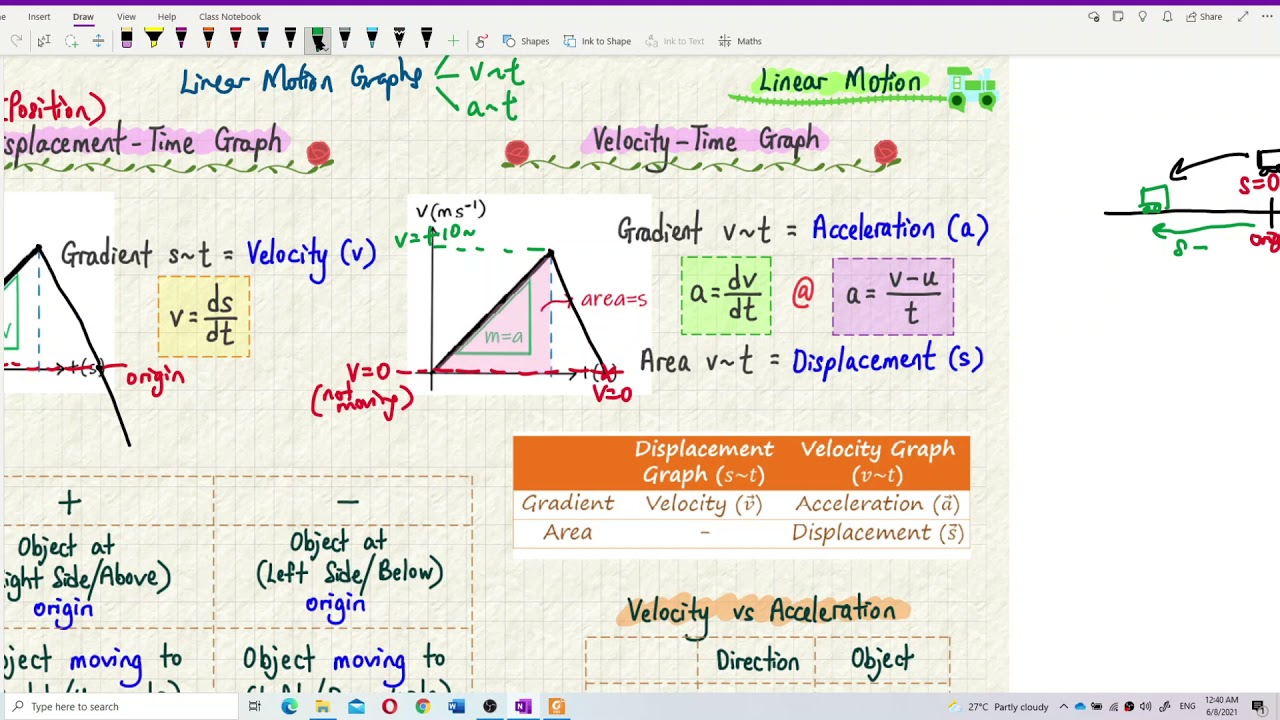 Insert Draw View Help Class Notebook
Share
Shapes Ink to Shape Ink to Text Maths
Linear Motion Graphs
v~t
a~t
Linear Motion
Position)
splacement-Time Graph
Velocity-Time Graph
Gradient s~t = Velocity (v)
v = ds/dt
origin
V(ms⁻¹)
v=+10
area=s
m=a
V=0
(not moving)
V=0
Gradient v~t = Acceleration (a)
a = dv/dt @ a = v-u/t
Area v~t = Displacement (s)
s=0
s -
Displacement Graph (s~t) Velocity Graph (v~t)
Gradient Velocity (v⃗) Acceleration (a⃗)
Area - Displacement (s⃗)
+ −
Object at
ight Side/Above)
origin
Object at
(Left Side/Below)
origin
bject moving to
Object moving to
Velocity vs Acceleration
Direction Object
Type here to search
27°C Partly cloudy
ENG
12:40 AM
6/8/2021